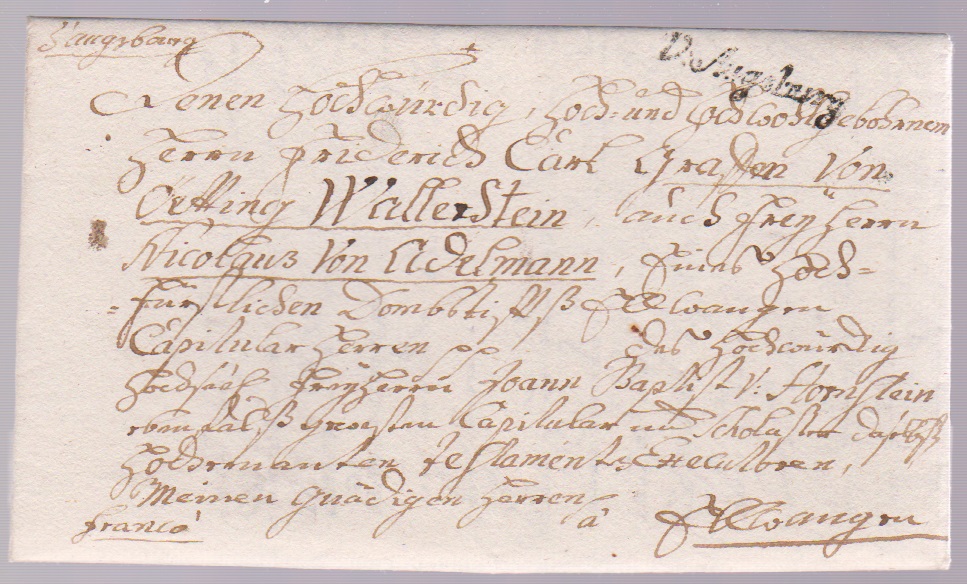 d'augsbourg
V. Augsburg
Denen Hochwürdig, Hoch- und Hochwohlgebohrnen
Herrn Friderich Carl Graffen Von
Oetting Wallerstein, auch Freyherrn
Nicolaus Von Adelmann, Eines Hoch-
fürstlichen Dombstiffts Ellwangen
Capitular Herren pp des Hochwürdig
Hochseel. Freyherrn Joann Baptist v: Hornstein
eben falß geweßten Capitular und Scholaster daselbst
Hochernanten Testaments Executoren,
Meinen Gnädigen Herren
franco
à Ellwangen